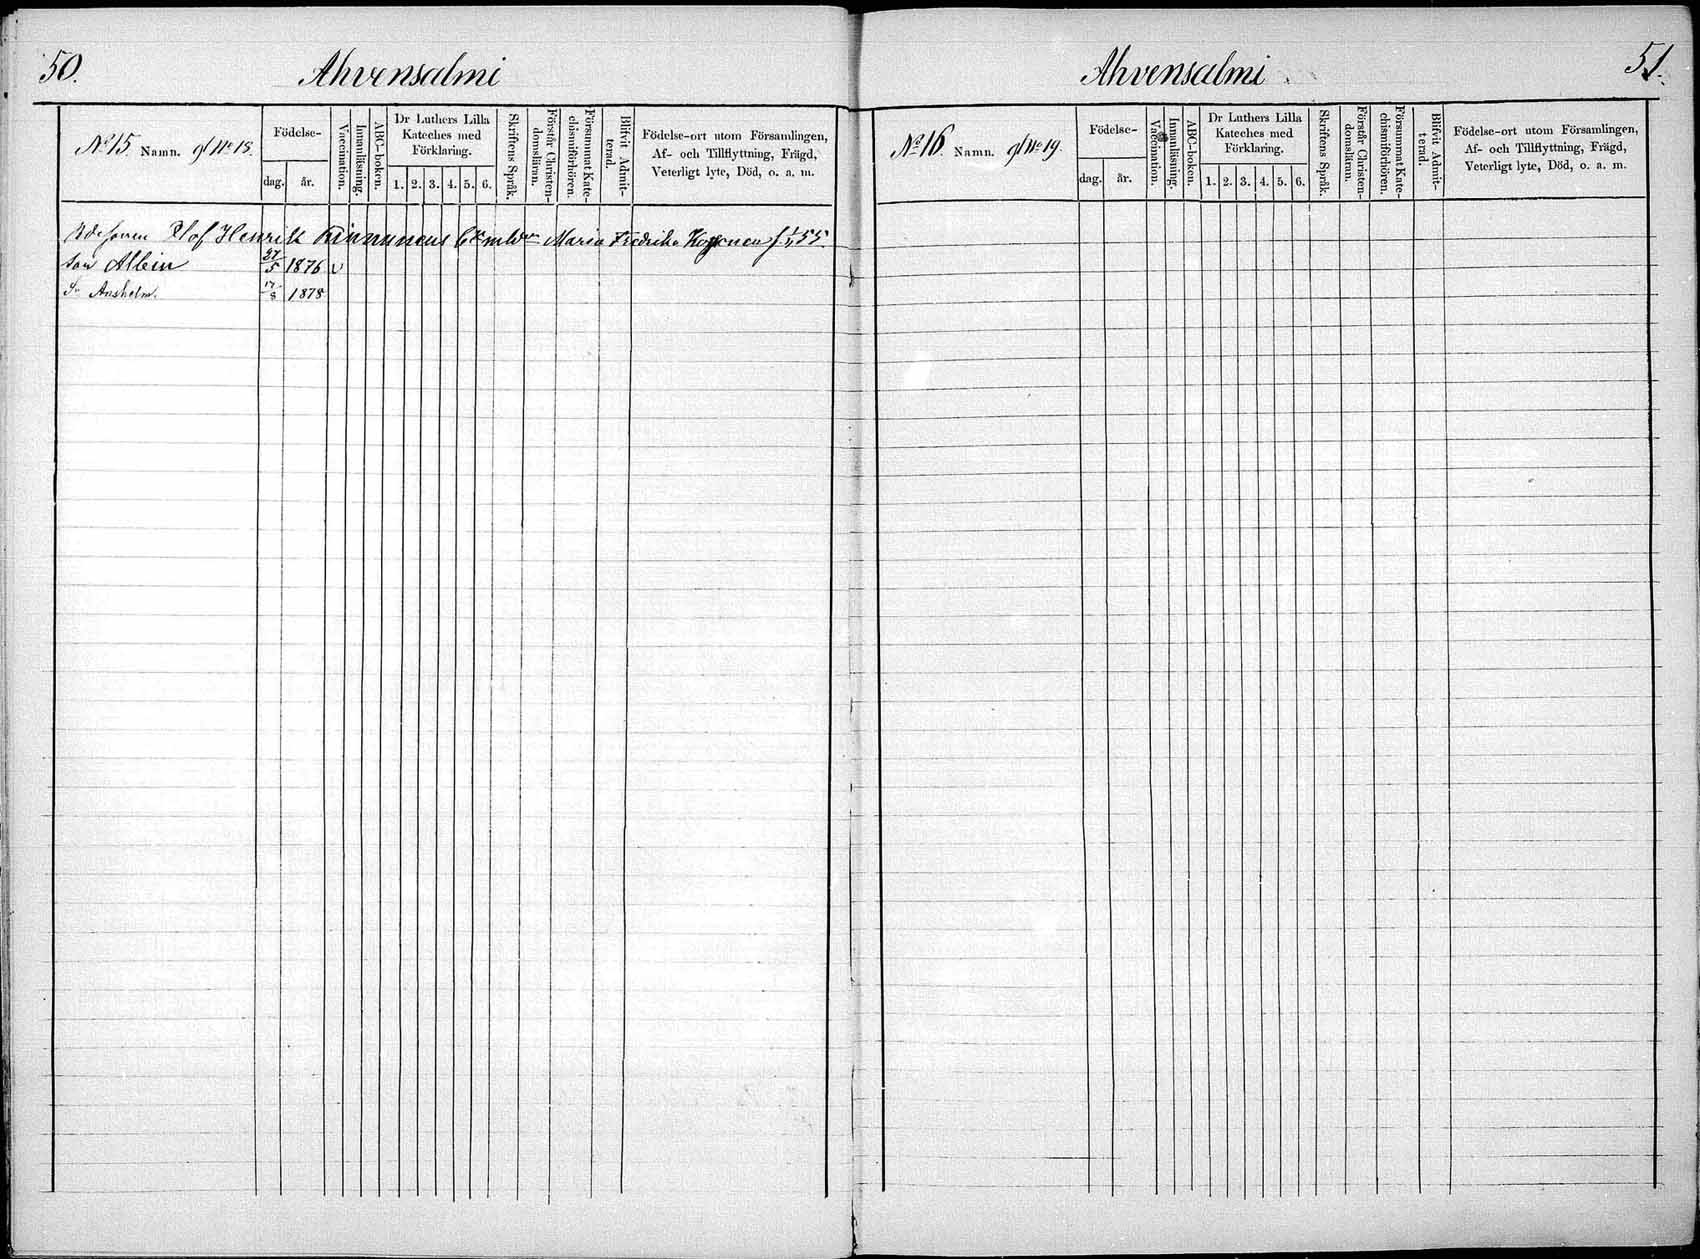 50.
Ahvensalmi
No 15. Namn. gl No 18.
Födelse-
dag.
år.
Vaccination.
Innanläsning.
ABC-boken.
Dr Luthers Lilla
Kateches med
Förklaring.
1. 2. 3. 4. 5. 6.
Skriftens Språk.
Förstår Christen-
domsläran.
Försummat Kate-
chismiförhören.
Blifvit Admit-
terad.
Födelse-ort utom Församlingen,
Af- och Tillflyttning, Frägd,
Veterligt lyte, Död, o. a. m.
Olof Henrik Kinnunens Maria Fredrika f. 55
son Albin 27/5 1876 v
S. Anshelm. 17/8 1878
51.
Ahvensalmi
No 16. Namn. gl No 19.
Födelse-
dag.
år.
Vaccination.
Innanläsning.
ABC-boken.
Dr Luthers Lilla
Kateches med
Förklaring.
1. 2. 3. 4. 5. 6.
Skriftens Språk.
Förstår Christen-
domsläran.
Försummat Kate-
chismiförhören.
Blifvit Admit-
terad.
Födelse-ort utom Församlingen,
Af- och Tillflyttning, Frägd,
Veterligt lyte, Död, o. a. m.